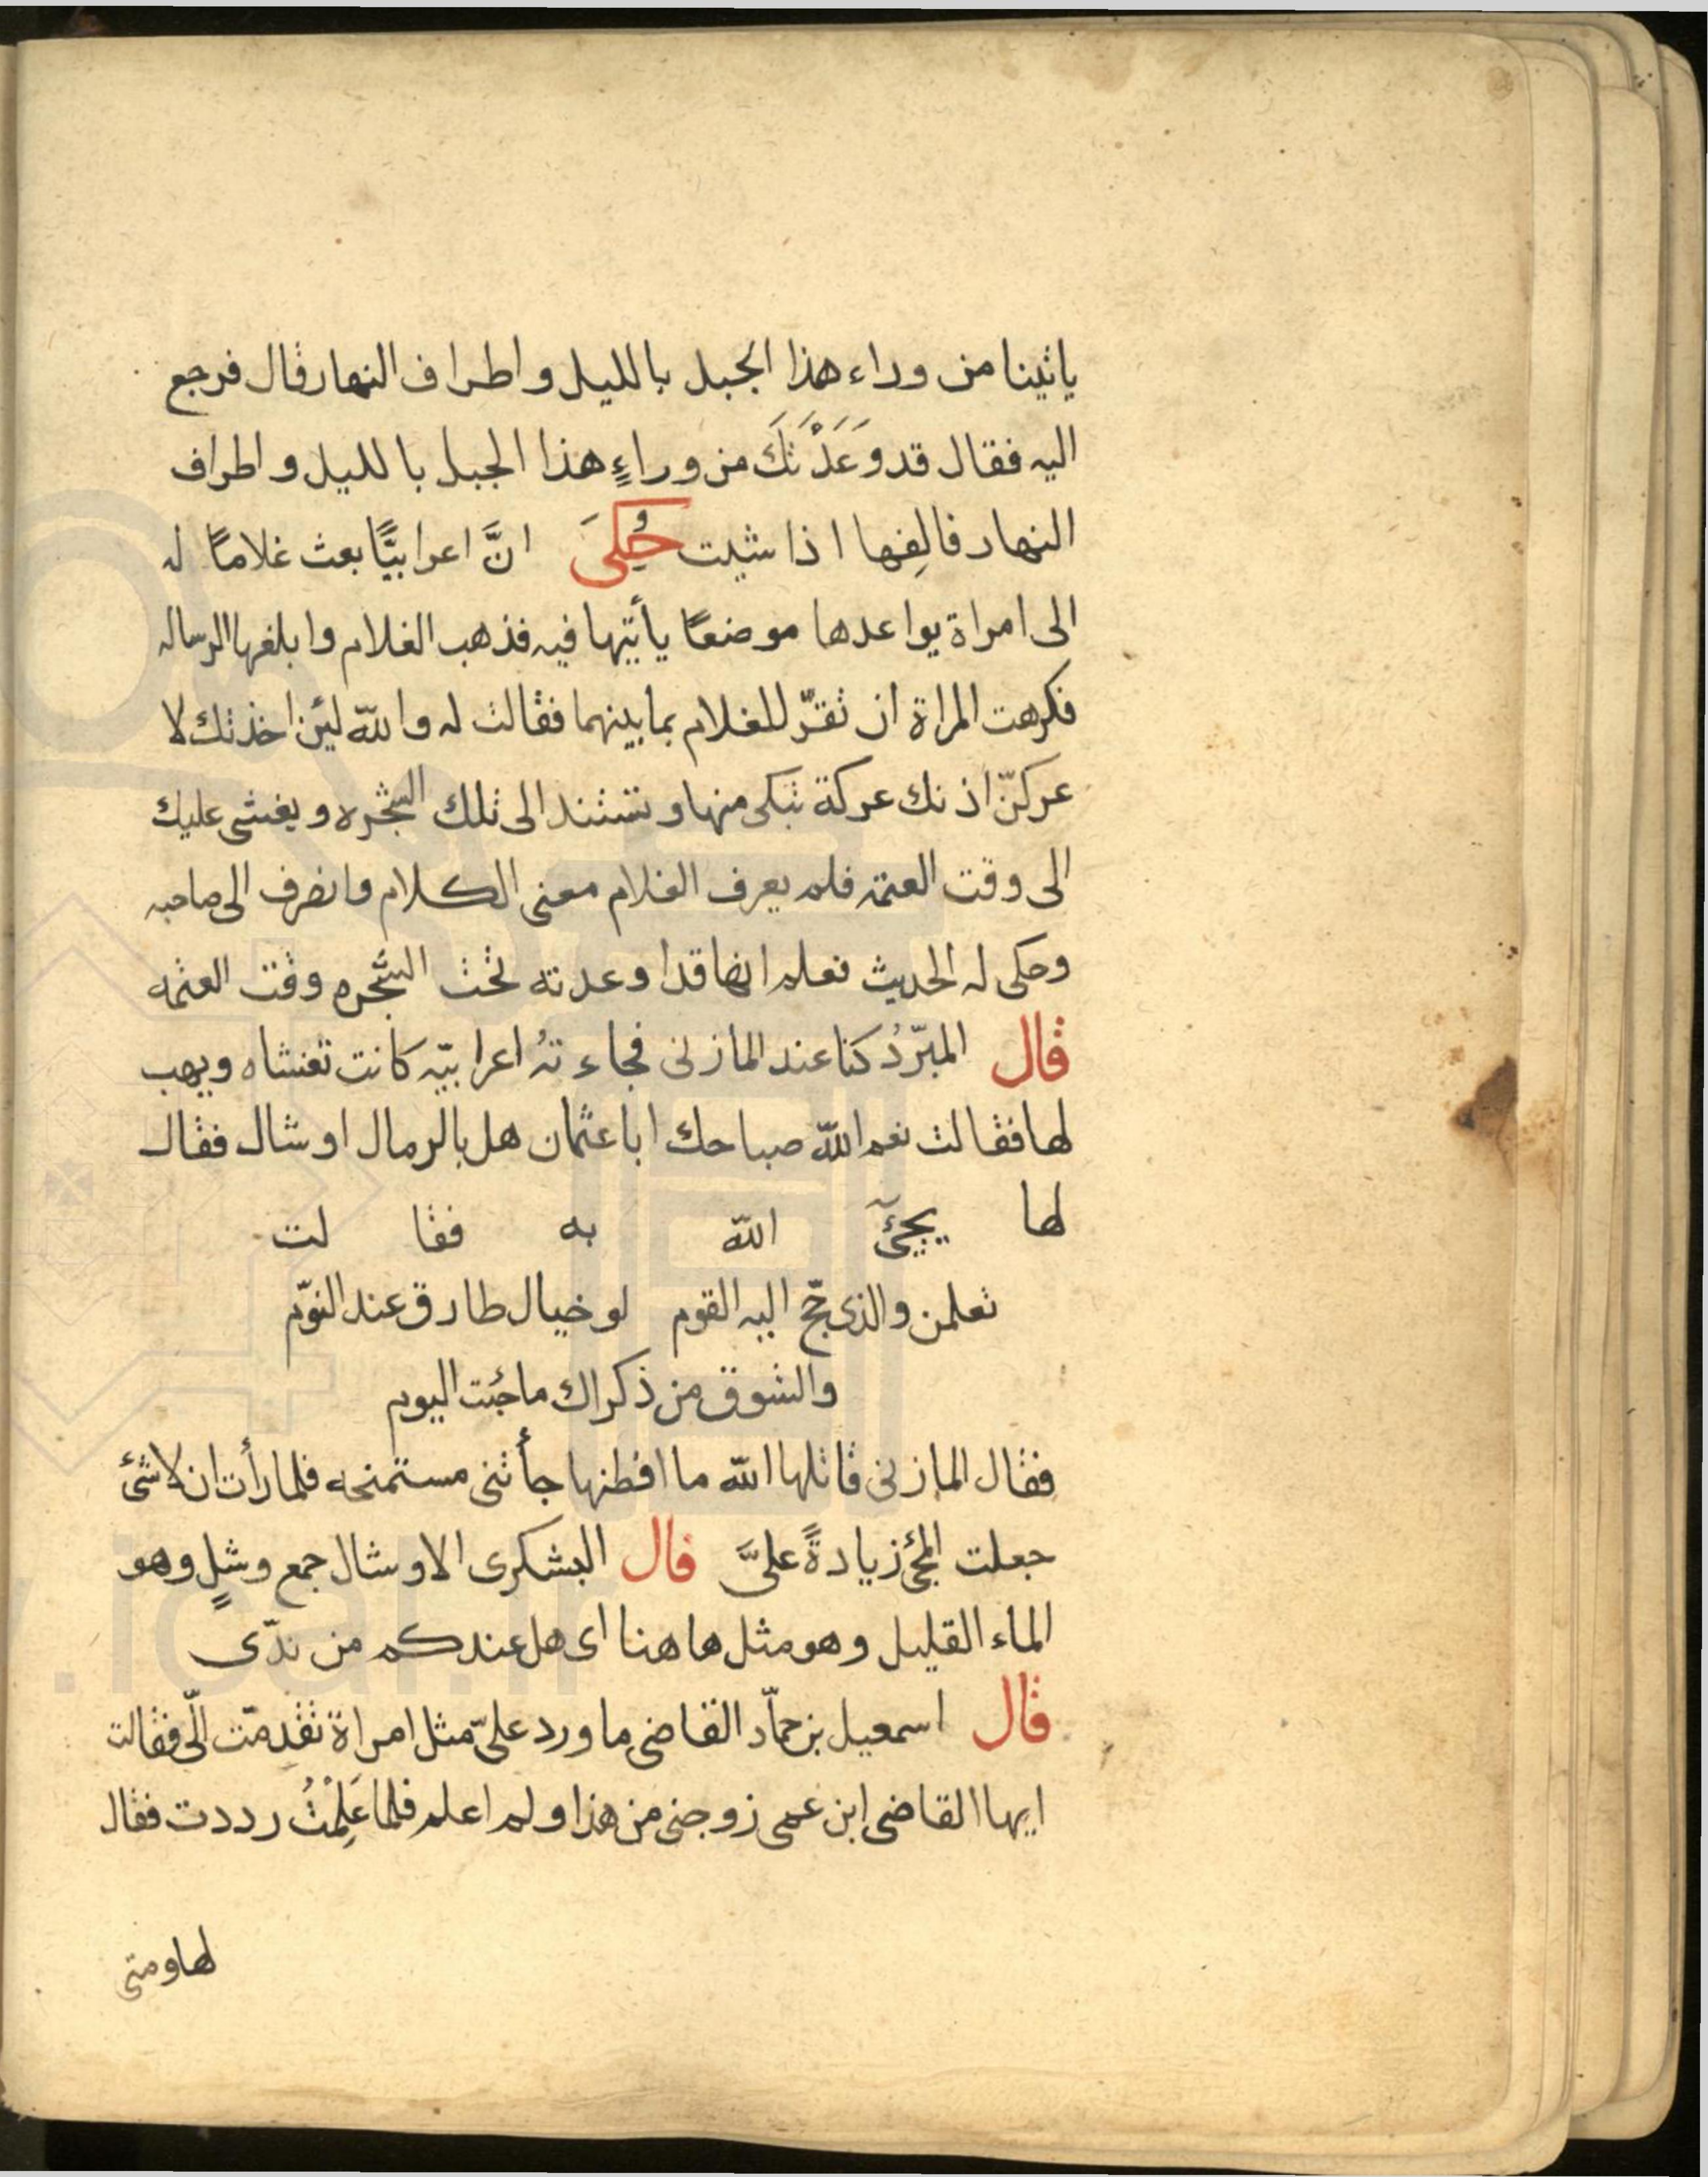 ياتينا من وراء هذا الجبل بالليل واطراف النهار قال فرجع
اليه فقال قد وَعَدَّتَكَ من وراءٍ هذا الجبل بالليل واطراف
النهار فالِقها اذا شيت حُكِىَ انَّ اعرابيًّا بعث غلامًا له
الى امراة يواعدها موضعًا يأتيها فيه فذهب الغلام وابلغها الرساله
فكرهت المراة ان تقرّ للغلام بما بينهما فقالت له والله ليئن اخذتك لا
عركنّ اذنك عركة تبكى منها وتستند الى تلك الشجره ويغشى عليك
الى وقت العتمه فلم يعرف الغلام معنى الكلام وانصرف الى صاحبه
وحكى له الحديث فعلم انها قد اوعدته تحت الشجره وقت العتمه
قال المبرّدُ كنا عند المازنى فجاءتهُ اعرابيّه كانت تغشاه ويهب
لها فقالت نعم الله صباحك اباعثمان هل بالرمال اوشال فقال
لها يجيئ الله به فقالت
تعلمن والذى حجّ اليه القوم لو خيال طارق عند النوّم
والشوق من ذكراك ما جئت اليوم
فقال المازنى قاتلها الله ما افطنها جأتنى مستمنحه فلما رأت ان لاشئ
جعلت المجئ زيادةً علىَّ قال اليشكرى الاوشال جمع وشلٍ وهو
الماء القليل وهو مثل هاهنا اى هل عندكم من ندّى
قال اسمعيل بن حمّاد القاضى ما ورد علىّ مثل امراة تقدمّت الّى فقالت
ايها القاضى ابن عمى زوجنى من هذا ولم اعلم فلما عَلِمْتُ رددت فقال
لها ومتى